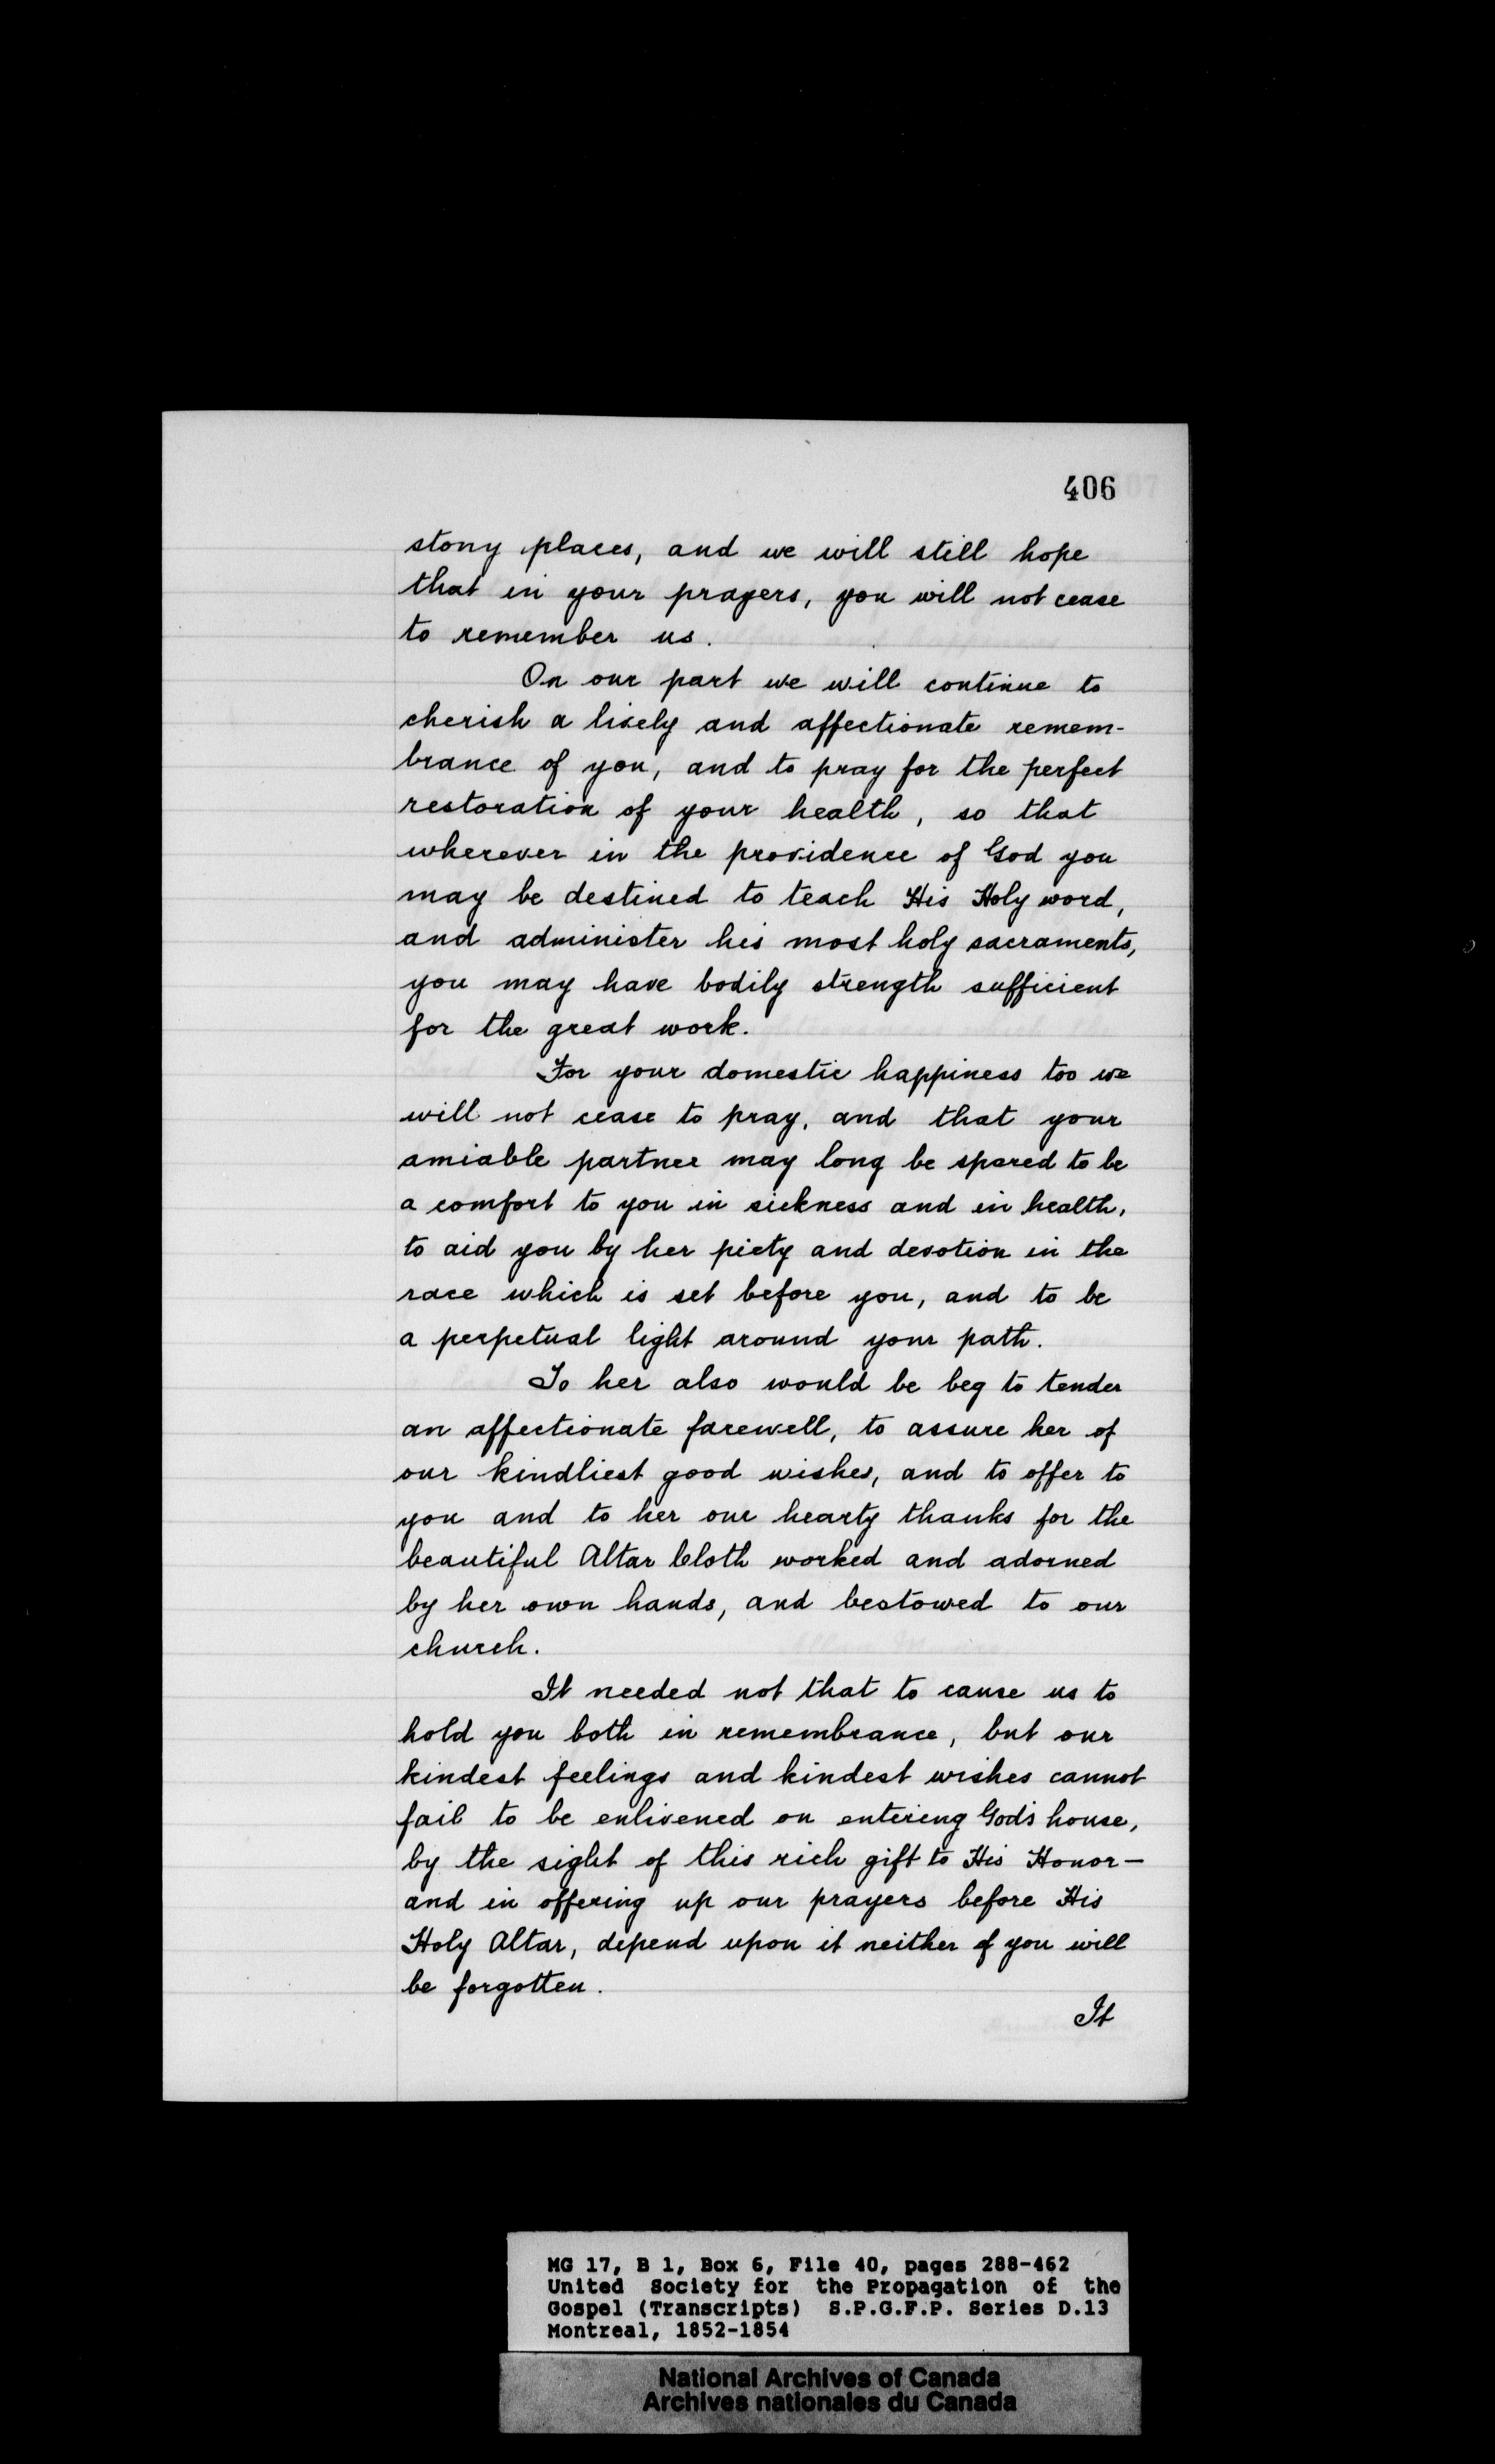 406
stony places, and we will still hope
that in your prayers, you will not cease
to remember us.
On our part we will continue to
cherish a lively and affectionate remem-
brance of you, and to pray for the perfect
restoration of your health, so that
wherever in the providence of God you
may be destined to teach His Holy word,
and administer his most holy sacraments,
you may have bodily strength sufficient
for the great work.
For your domestic happiness too we
will not cease to pray, and that your
amiable partner may long be spared to be
a comfort to you in sickness and in health,
to aid you by her piety and devotion in the
race which is set before you, and to be
a perpetual light around your path.
To her also would be beg to tender
an affectionate farewell, to assure her of
our kindliest good wishes, and to offer to
you and to her our hearty thanks for the
beautiful Altar Cloth worked and adorned
by her own hands, and bestowed to our
church.
It needed not that to cause us to
hold you both in remembrance, but our
kindest feelings and kindest wishes cannot
fail to be enlivened on entering God's house,
by the sight of this rich gift to His Honor—
and in offering up our prayers before His
Holy Altar, depend upon it neither of you will
be forgotten.
It
MG 17, B 1, Box 6, File 40, pages 288-462
United Society for the Propagation of the
Gospel (Transcripts) S.P.G.F.P. Series D.13
Montreal, 1852-1854
National Archives of Canada
Archives nationales du Canada